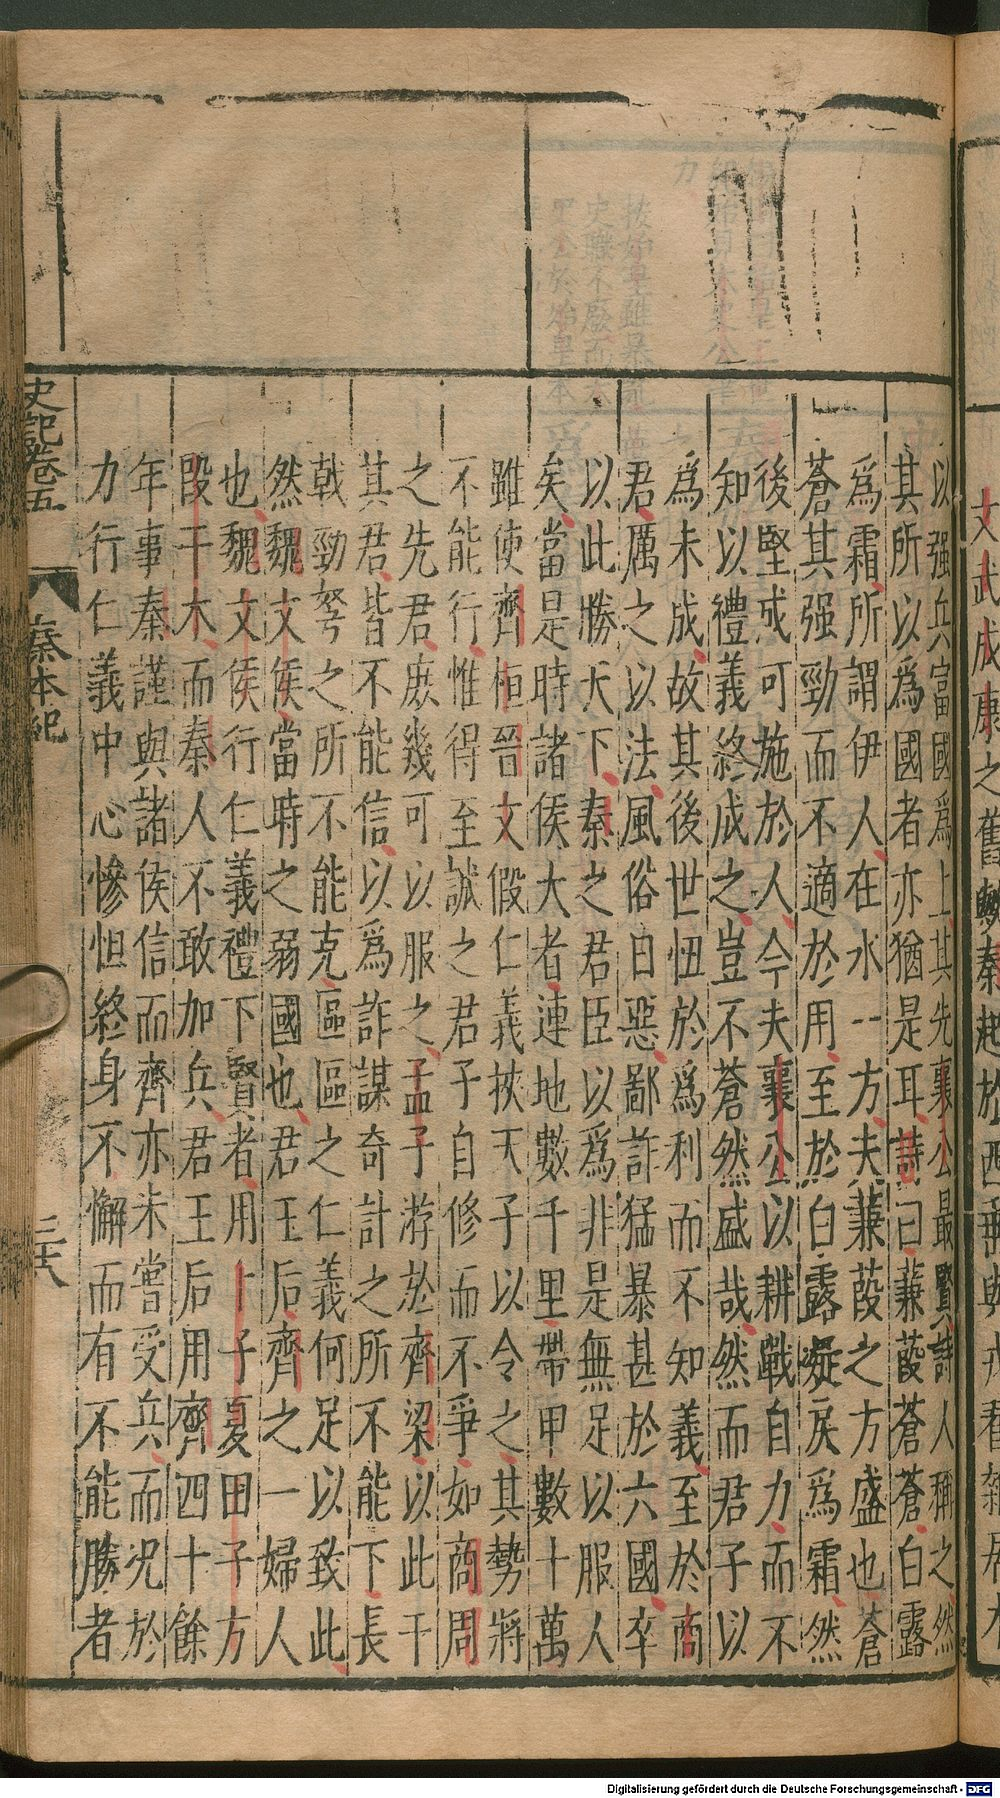 文武成康之舊
以强兵富國爲上其先襄公最賢詩人稱之然
其所以爲國者亦猶是耳詩曰蒹葭蒼蒼白露
爲霜所謂伊人在水一方夫蒹葭之方盛也蒼
蒼其强勁而不適於用至於白露凝戾爲霜然
後堅成可施於人今夫襄公以耕戰自力而不
知以禮義終成之豈不蒼然盛哉然而君子以
爲未成故其後世忸於爲利而不知義至於商
君厲之以法風俗日惡鄙詐猛暴甚於六國卒
以此勝天下秦之君臣以爲非是無足以服人
矣當是時諸侯大者連地數千里帶甲數十萬
雖使齊桓晉文假仁義挾天子以令之其勢將
不能行惟得至誠之君子自修而不爭如商周
之先君庶幾可以服之孟子游於齊梁以此干
其君皆不能信以爲詐謀奇計之所不能下長
戟勁弩之所不能克區區之仁義何足以致此
然魏文侯當時之弱國也君王后齊之一婦人
也魏文侯行仁義禮下賢者用卜子夏田子方
段干木而秦人不敢加兵君王后用齊四十餘
年事秦謹與諸侯信而齊亦未嘗受兵而況於
力行仁義中心慘怛終身不懈而有不能勝者
史記卷五
秦本紀
三十八
Digitalisierung gefördert durch die Deutsche Forschungsgemeinschaft - DFG